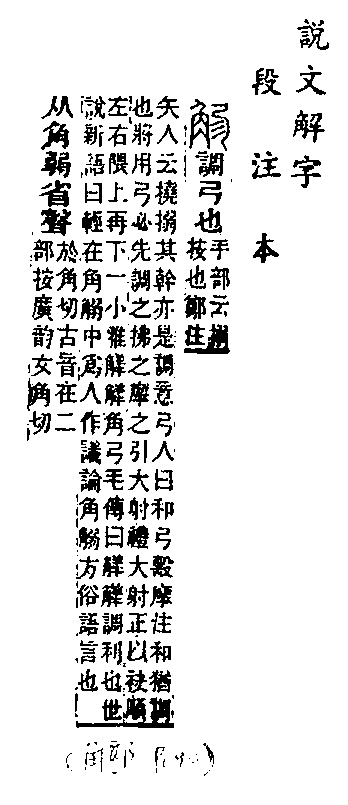 說文解字
段注本
調弓也
手部云搦
按也鄭注
矢人云橈搦其幹亦是調意弓人曰和弓毄摩注和猶調
也將用弓必先調之拂之摩之引大射禮大射正以袂順
左右隈上再下一小雅觲觲角弓毛傳曰觲觲調利也世
說新語曰輕在角䚥中爲人作議論角䚥方俗語言也
从角弱省聲
於角切古音在二
部按廣韵女角切